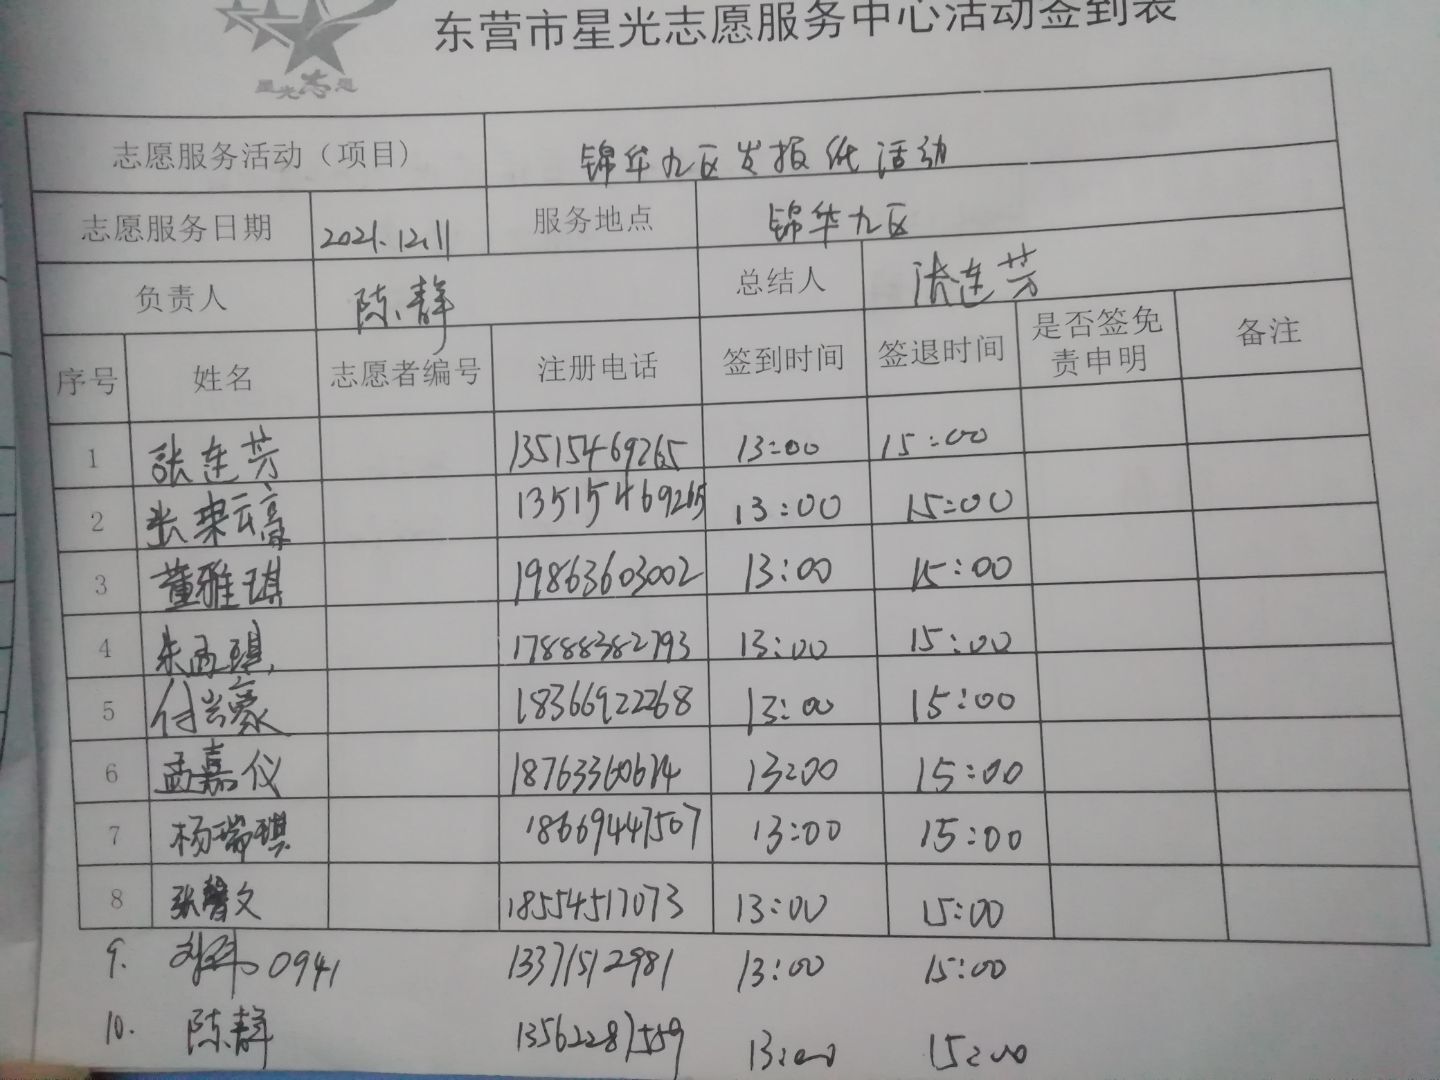 星光志愿
东营市星光志愿服务中心活动签到表
志愿服务活动（项目） 锦华九区发报纸活动
志愿服务日期 2021.12.11 服务地点 锦华九区
负责人 陈静 总结人 张连芳
序号 姓名 志愿者编号 注册电话 签到时间 签退时间 是否签免责申明 备注
1 张连芳 13515469265 13:00 15:00
2 张来云高 13515469265 13:00 15:00
3 董雅琪 19863603002 13:00 15:00
4 朱孟琪 17888382793 13:00 15:00
5 付兴豪 18366922268 13:00 15:00
6 孟嘉仪 18763360614 13:00 15:00
7 杨瑞琪 18669447507 13:00 15:00
8 张馨文 18554517073 13:00 15:00
9. 0941 13371512981 13:00 15:00
10. 陈静 13562287559 13:00 15:00